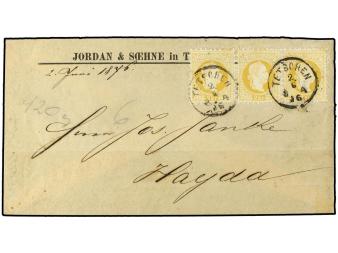 JORDAN & SŒHNE in T
2. Juni 1876
TETSCHEN
TETSCHEN
6
Herrn Jos. Janke
Hayda